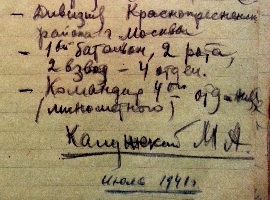 - Дивизия Краснопресненск
района г. Москва
- 1ый батальон, 2 рота,
2 взвод - 4 отдел.
- Командир 4ого отд-ния
(минометного)
М А.
июль 1941 г